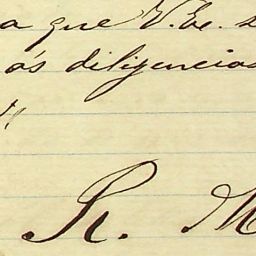 a que V. Ex. s
ás diligencias
R. M